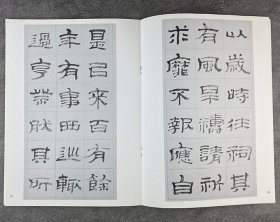 以歲時往祠其
有風旱禱請祈
求靡不報應自
是㠯來百有餘
年有事西巡輒
過亨祭然其所